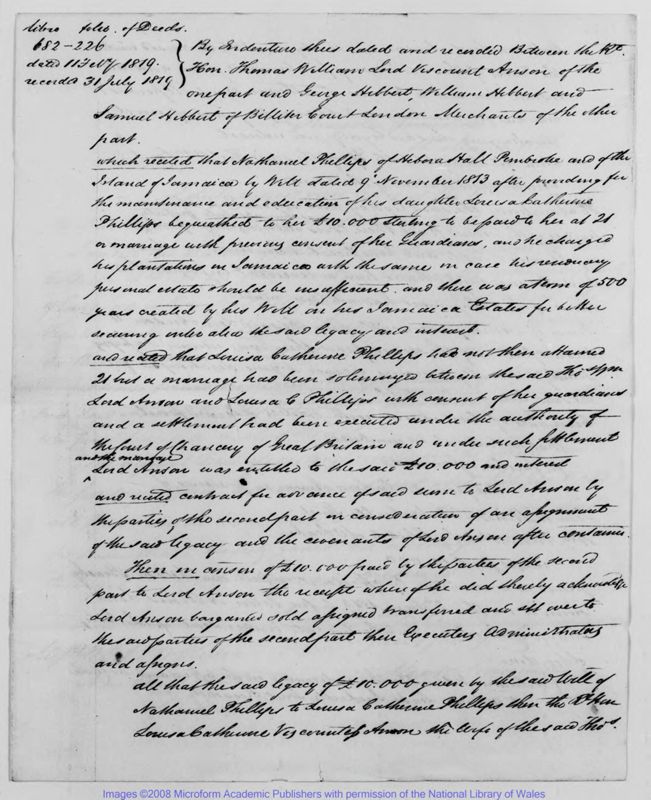 libro folio of Deeds.
682-226
dated 11 Feby 1819.
recorded 31 July 1819
By Indenture thus dated and recorded Between the Rt.
Hon. Thomas William Lord Viscount Anson of the
one part and George Hibbert, William Hibbert and
Samuel Hibbert of Billiter Court London Merchants of the other
part.
which recited that Nathaniel Phillips of Hebora Hall Pembroke and of the
Island of Jamaica by Will dated 9 November 1813 after providing for
the maintenance and education of his daughter Louisa Catherine
Phillips bequeathed to her £10.000 sterling to be paid to her at 21
or marriage with previous consent of her Guardians, and he charged
his plantations in Jamaica with the same in case his residuary
personal estate should be insufficient. and there was a term of 500
years created by his Will in his Jamaica Estates for better
securing inter alia the said legacy and interest.
and recited that Louisa Catherine Phillips had not then attained
21 but a marriage had been solemnized between the said Thos Wm
Lord Anson and Louisa C Phillips with consent of her guardians
and a settlement had been executed under the authority of
the Court of Chancery of Great Britain and under such settlement
and the marriage
Lord Anson was entitled to the said £10.000 and interest
and recited contract for advance of said sum to Lord Anson by
the parties of the second part in consideration of an assignment
of the said legacy and the covenants of Lord Anson after contained.
Then in conson of £10.000 paid by the parties of the second
part to Lord Anson the receipt whereof he did thereby acknowledge
Lord Anson bargained sold assigned transferred and set over to
the said parties of the second part their Executors Administrators
and assigns.
all that the said legacy of £10.000 given by the said Will of
Nathaniel Phillips to Louisa Catherine Phillips then the Rt Hon
Louisa Catherine Viscountess Anson the Wife of the said Thos.
Images ©2008 Microform Academic Publishers with permission of the National Library of Wales